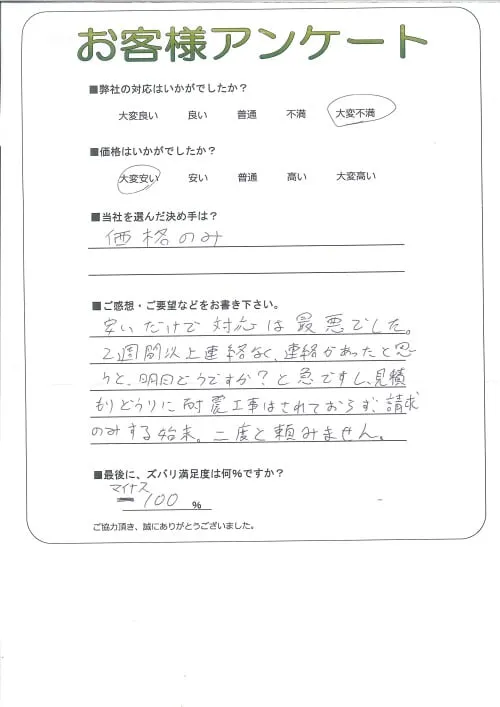 お客様アンケート
■弊社の対応はいかがでしたか？
大変良い 良い 普通 不満 大変不満
■価格はいかがでしたか？
大変安い 安い 普通 高い 大変高い
■当社を選んだ決め手は？
価格のみ
■ご感想・ご要望などをお書き下さい。
安いだけで対応は最悪でした。
2週間以上連絡なく、連絡があったと思
うと、明日どうですか？と急ですし、見積
もりどうりに耐震工事はされておらず、請求
のみする始末。二度と頼みません。
■最後に、ズバリ満足度は何％ですか？
マイナス
-100 ％
ご協力頂き、誠にありがとうございました。